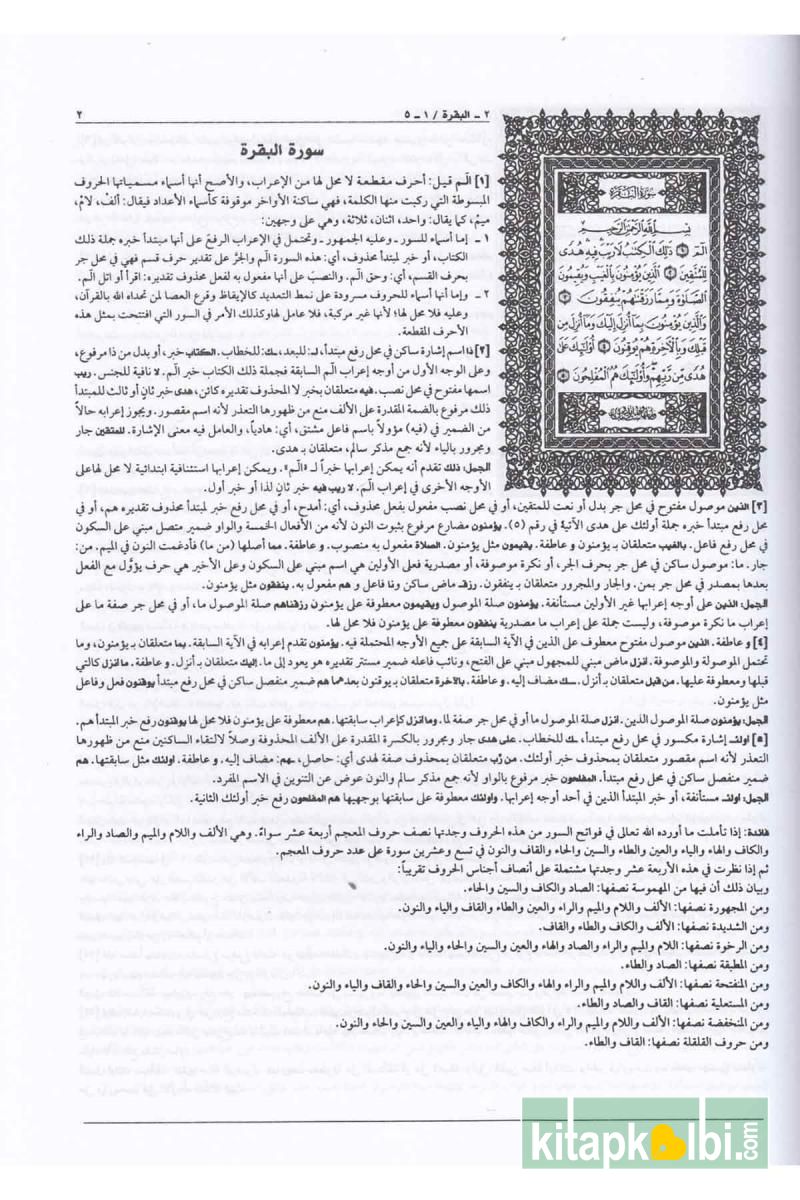 ٢ ـ البقرة / ١ ـ ٥
٢
سورة البقرة
[١] الٓم قيل: أحرف مقطعة لا محل لها من الإعراب، والأصح أنها أسماء مسمياتها الحروف
المبسوطة التي ركبت منها الكلمة، فهي ساكنة الأواخر موقوفة كأسماء الأعداد فيقال: ألفْ، لامْ،
ميمْ، كما يقال: واحد، اثنان، ثلاثة، وهي على وجهين:
١ ـ إما أسماء للسور ـ وعليه الجمهور ـ وتحتمل في الإعراب الرفعَ على أنها مبتدأ خبره جملة ذلك
الكتاب، أو خبر لمبتدأ محذوف، أي: هذه السورة الٓم والجرَّ على تقدير حرف قسم فهي في محل جر
بحرف القسم، أي: وحق الٓم. والنصبَ على أنها مفعول به لفعل محذوف تقديره: اقرأ أو اتل الٓم.
٢ ـ وإما أنها أسماء للحروف مسرودة على نمط التعديد كالإيقاظ وقرع العصا لمن تحداه الله بالقرآن،
وعليه فلا محل لها؛ لأنها غير مركبة، فلا عامل لهاوكذلك الأمر في السور التي افتتحت بمثل هذه
الأحرف المقطعة.
سُورَةُ البَقَرَةِ
بِسْمِ اللَّهِ الرَّحْمَٰنِ الرَّحِيمِ
الٓمٓ ۝ ذَٰلِكَ الْكِتَٰبُ لَا رَيْبَ فِيهِ هُدًى
لِّلْمُتَّقِينَ ۝ الَّذِينَ يُؤْمِنُونَ بِالْغَيْبِ وَيُقِيمُونَ
الصَّلَوٰةَ وَمِمَّا رَزَقْنَٰهُمْ يُنفِقُونَ ۝
وَالَّذِينَ يُؤْمِنُونَ بِمَا أُنزِلَ إِلَيْكَ وَمَا أُنزِلَ مِن
قَبْلِكَ وَبِالْآخِرَةِ هُمْ يُوقِنُونَ ۝ أُولَٰئِكَ عَلَىٰ
هُدًى مِّن رَّبِّهِمْ وَأُولَٰئِكَ هُمُ الْمُفْلِحُونَ ۝
[٢] ذا اسم إشارة ساكن في محل رفع مبتدأ، لـ: للبعد، ـك: للخطاب. الكتاب خبر، أو بدل من ذا مرفوع،
وعلى الوجه الأول من أوجه إعراب الٓم السابقة فجملة ذلك الكتاب خبر الٓم. لا نافية للجنس. ريب
اسمها مفتوح في محل نصب. فيه متعلقان بخبر لا المحذوف تقديره كائن، هدى خبر ثانٍ أو ثالث للمبتدأ
ذلك مرفوع بالضمة المقدرة على الألف منع من ظهورها التعذر لأنه اسم مقصور. ويجوز إعرابه حالاً
من الضمير في (فيه) مؤولاً باسم فاعل مشتق، أي: هادياً، والعامل فيه معنى الإشارة. للمتقين جار
ومجرور بالياء لأنه جمع مذكر سالم، متعلقان بـ هدى.
الجمل: ذلك تقدم أنه يمكن إعرابها خبراً لـ «الٓم». ويمكن إعرابها استئنافية ابتدائية لا محل لهاعلى
الأوجه الأخرى في إعراب الٓمٓ. لا ريب فيه خبر ثانٍ لذا أو خبر أول.
[٣] الذين موصول مفتوح في محل جر بدل أو نعت للمتقين، أو في محل نصب مفعول بفعل محذوف، أي: أمدح، أو في محل رفع خبر لمبتدأ محذوف تقديره هم، أو في
محل رفع مبتدأ خبره جملة أولئك على هدى الآتية في رقم (٥). يؤمنون مضارع مرفوع بثبوت النون لأنه من الأفعال الخمسة والواو ضمير متصل مبني على السكون
في محل رفع فاعل. بالغيب متعلقان بـ يؤمنون و عاطفة. يقيمون مثل يؤمنون. الصلاة مفعول به منصوب. و عاطفة. مما أصلها (من ما) فأدغمت النون في الميم. من:
جار. ما: موصول ساكن في محل جر بحرف الجر، أو نكرة موصوفة، أو مصدرية فعلى الأولين هي اسم مبني على السكون وعلى الأخير هي حرف يؤوَّل مع الفعل
بعدها بمصدر في محل جر بمن. والجار والمجرور متعلقان بـ ينفقون. رزق ماض ساكن ونا فاعل و هم مفعول به. ينفقون مثل يؤمنون.
الجمل: الذين على أوجه إعرابها غير الأولين مستأنفة. يؤمنون صلة الموصول ويقيمون معطوفة على يؤمنون رزقناهم صلة الموصول ما، أو في محل جر صفة ما على
إعراب ما نكرة موصوفة، وليست جملة على إعراب ما مصدرية ينفقون معطوفة على يؤمنون فلا محل لها.
[٤] و عاطفة. الذين موصول مفتوح معطوف على الذين في الآية السابقة على جميع الأوجه المحتملة فيه. يؤمنون تقدم إعرابه في الآية السابقة. بما متعلقان بـ يؤمنون، وما
تحتمل الموصولة والموصوفة. انزل ماض مبني للمجهول مبني على الفتح، ونائب فاعله ضمير مستتر تقديره هو يعود إلى ما. إليك متعلقان بـ أنزل. و عاطفة. ما انزل كالتي
قبلها ومعطوفة عليها. من قبل متعلقان بـ أنزل. ـك مضاف إليه. و عاطفة. بالآخرة متعلقان بـ يوقنون بعدهما هم ضمير منفصل ساكن في محل رفع مبتدأ يوقنون فعل وفاعل
مثل يؤمنون.
الجمل: يؤمنون صلة الموصول الذين. انزل صلة الموصول ما أو في محل جر صفة لما. وما انزل كإعراب سابقتها. هم معطوفة على يؤمنون فلا محل لها يوقنون رفع خبر المبتدأ هم.
[٥] اولئـ إشارة مكسور في محل رفع مبتدأ، ـك للخطاب. على هدى جار ومجرور بالكسرة المقدرة على الألف المحذوفة وصلاً لالتقاء الساكنين منع من ظهورها
التعذر لأنه اسم مقصور متعلقان بمحذوف خبر أولئك. من رب متعلقان بمحذوف صفة لهدى أي: حاصل، هم: مضاف إليه. و عاطفة. اولئك مثل سابقتها. هم
ضمير منفصل ساكن في محل رفع مبتدأ. المفلحون خبر مرفوع بالواو لأنه جمع مذكر سالم والنون عوض عن التنوين في الاسم المفرد.
الجمل: اولئـ مستأنفة، أو خبر المبتدأ الذين في أحد أوجه إعرابها. واولئك معطوفة على سابقتها بوجهيها هم المفلحون رفع خبر أولئك الثانية.
فائدة: إذا تأملت ما أورده الله تعالى في فواتح السور من هذه الحروف وجدتها نصف حروف المعجم أربعة عشر سواءً. وهي الألف واللام والميم والصاد والراء
والكاف والهاء والياء والعين والطاء والسين والحاء والقاف والنون في تسع وعشرين سورة على عدد حروف المعجم.
ثم إذا نظرت في هذه الأربعة عشر وجدتها مشتملة على أنصاف أجناس الحروف تقريباً:
وبيان ذلك أن فيها من المهموسة نصفها: الصاد والكاف والسين والحاء.
ومن المجهورة نصفها: الألف واللام والميم والراء والعين والطاء والقاف والياء والنون.
ومن الشديدة نصفها: الألف والكاف والطاء والقاف.
ومن الرخوة نصفها: اللام والميم والراء والصاد والهاء والعين والسين والحاء والياء والنون.
ومن المطبقة نصفها: الصاد والطاء.
ومن المنفتحة نصفها: الألف واللام والميم والراء والهاء والكاف والعين والسين والحاء والقاف والياء والنون.
ومن المستعلية نصفها: القاف والصاد والطاء.
ومن المنخفضة نصفها: الألف واللام والميم والراء والكاف والهاء والياء والعين والسين والحاء والنون.
ومن حروف القلقلة نصفها: القاف والطاء.
kitapkalbi.com